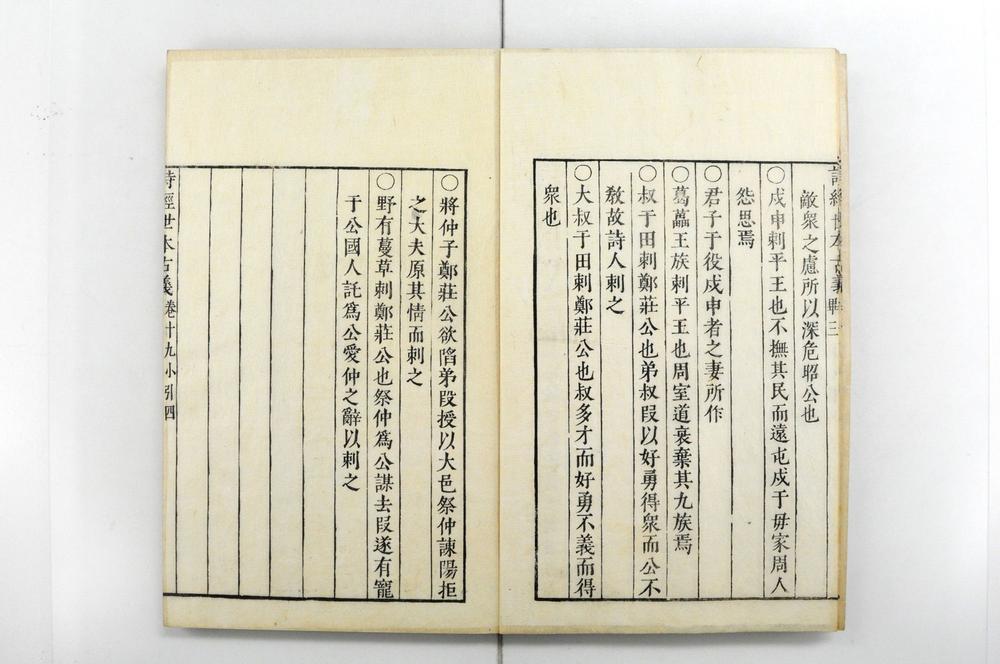 敵衆之慮所以深危昭公也
○戍申刺平王也不撫其民而遠屯戍于毋家周人
怨思焉
○君子于役戍申者之妻所作
○葛藟王族刺平王也周室道衰棄其九族焉
○叔于田刺鄭莊公也弟叔段以好勇得衆而公不
敎故詩人刺之
○大叔于田刺鄭莊公也叔多才而好勇不義而得
衆也
○將仲子鄭莊公欲陷弟段授以大邑祭仲諫陽拒
之大夫原其情而刺之
○野有蔓草刺鄭莊公也祭仲爲公謀去段遂有寵
于公國人託爲公愛仲之辭以刺之
詩經世本古義卷十九小引四